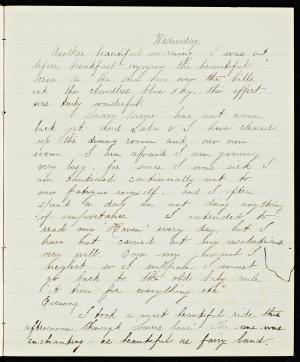 Wednesday.
Another beautiful morning. I was out
before breakfast enjoying the beautiful
scene as the sun rose over the hills
into the cloudless blue sky, the effect
was truly wonderful.
Mary Jane has not come
back yet. And Lulu & I have cleared
up the dining room and our own
room. I am afraid I am growing
very lazy, for since I was sick I
am cautioned continually not to
over fatigue myself. And I often
spend a day in not doing anything
of importance. I intended to
read my "Haven" every day, but I
have not carried out my resolutions
very well. Even my journal I
neglect, so I suppose I must
go back to the old rule
"A time for everything etc"
Evening.
I took a most beautiful ride this
afternoon through lovers lane. The was
enchanting - as beautiful as fairy land.